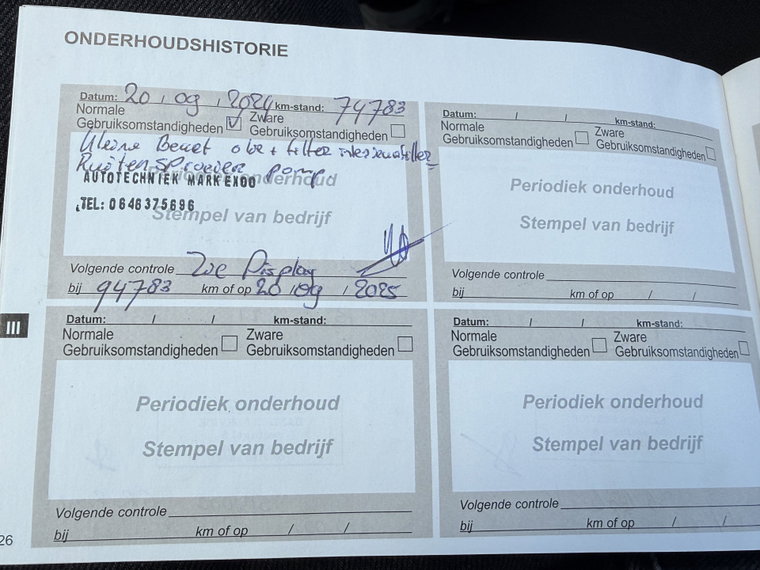 ONDERHOUDSHISTORIE
Datum: 20 / 09 / 2024 km-stand: 74783
Normale Gebruiksomstandigheden Zware Gebruiksomstandigheden
Kleine Beurt olie + filter
Ruitensproeier pomp
Periodiek onderhoud
AUTOTECHNIEK MARK EXOO
TEL: 0646375696
Stempel van bedrijf
Volgende controle Zie Display
bij 94783 km of op 20 / 09 / 2025
Datum: / / km-stand:
Normale Gebruiksomstandigheden Zware Gebruiksomstandigheden
Periodiek onderhoud
Stempel van bedrijf
Volgende controle
bij km of op / /
III
Datum: / / km-stand:
Normale Gebruiksomstandigheden Zware Gebruiksomstandigheden
Periodiek onderhoud
Stempel van bedrijf
Volgende controle
bij km of op / /
Datum: / / km-stand:
Normale Gebruiksomstandigheden Zware Gebruiksomstandigheden
Periodiek onderhoud
Stempel van bedrijf
Volgende controle
bij km of op / /
26